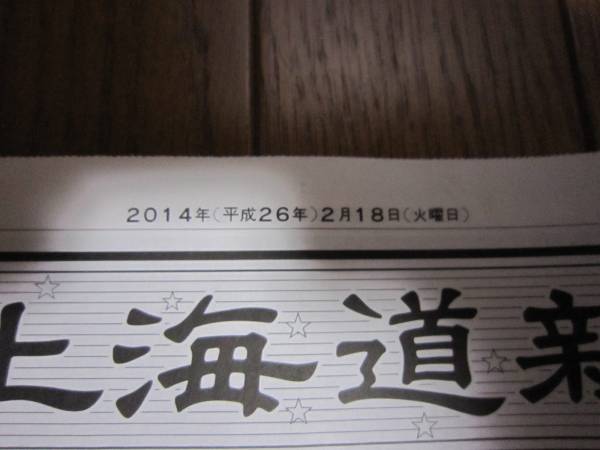 2014年(平成26年)2月18日(火曜日)
海道新